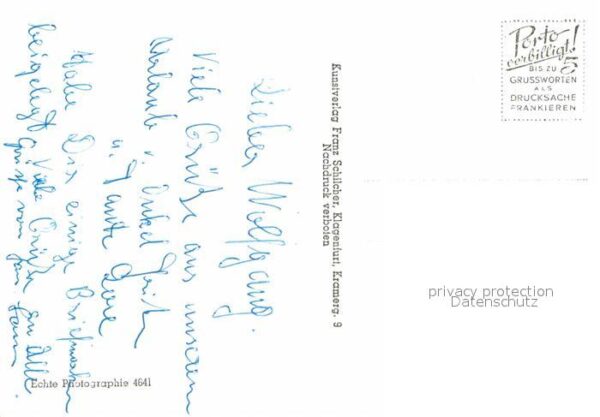 Lieber Wolfgang.
Viele Grüße aus unserem
Urlaub. Onkel
u. Tante
Habe Dir einige Briefmarken
beigelegt. Viele Grüße an Alle
Grüße von
Echte Photographie 4641
Kunstverlag Franz Schilcher, Klagenfurt, Kramerg. 9
Nachdruck verboten
Porto
verbilligt!
BIS ZU 5
GRUSSWORTEN
ALS
DRUCKSACHE
FRANKIEREN
privacy protection
Datenschutz